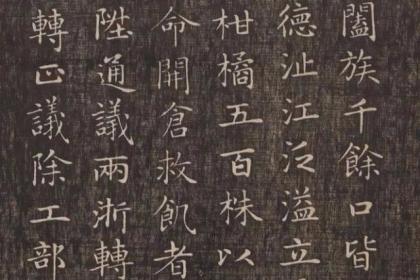 闔族千餘口皆
德沚江泛溢立
柑橘五百株以
命開倉救飢者
陞通議兩淛轉
轉正議除工部